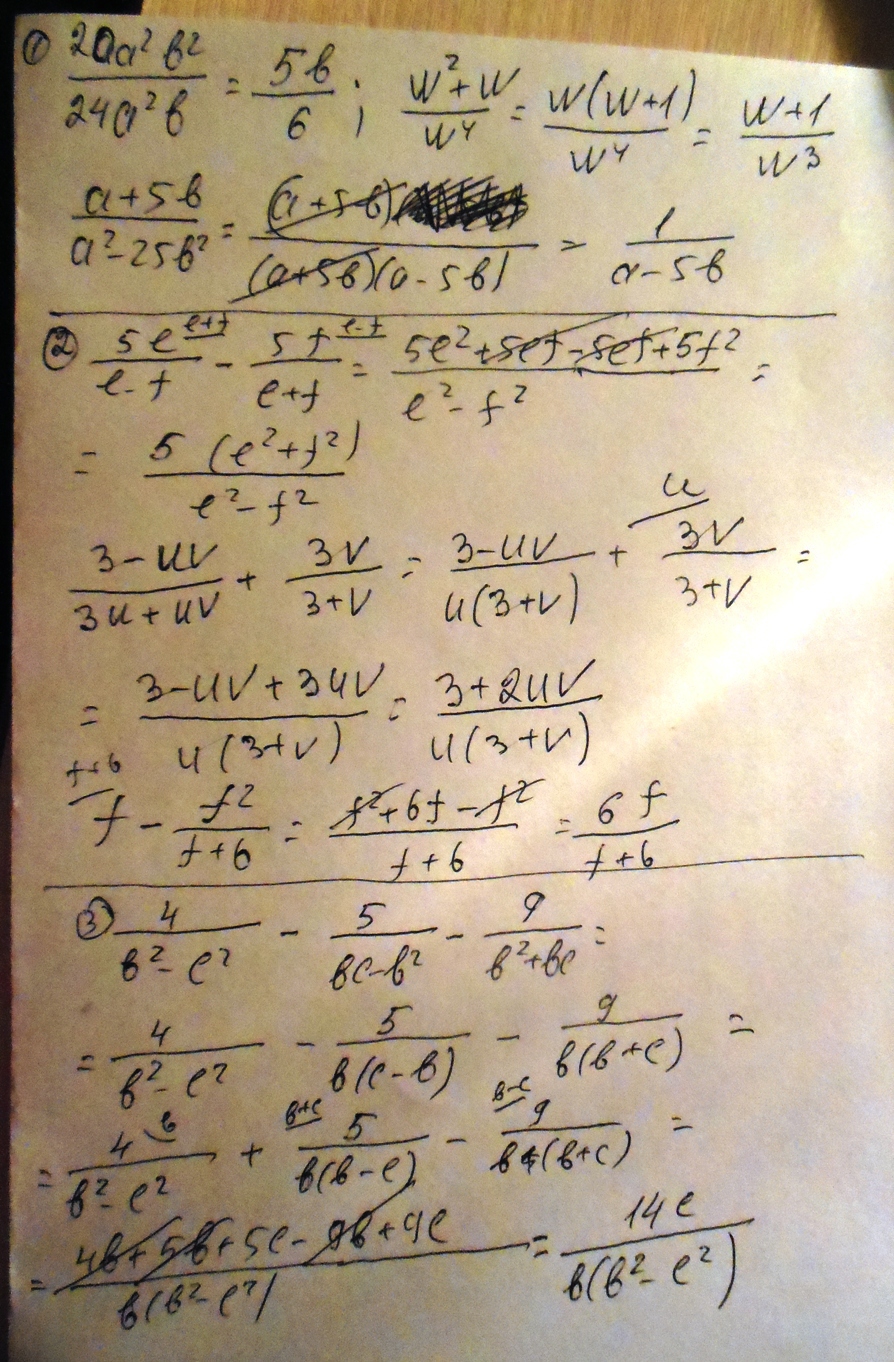 ① 20a²b²/24a²b = 5b/6 ; w²+w/w⁴ = w(w+1)/w⁴ = w+1/w³
a+5b/a²-25b² = (a+5b)/(a+5b)(a-5b) = 1/a-5b
② 5e^{e+f}/e-f - 5f^{e-f}/e+f = 5e²+5ef-5ef+5f²/e²-f² =
= 5(e²+f²)/e²-f²
3-uv/3u+uv + 3v/3+v = 3-uv/u(3+v) + ^{u}3v/3+v =
= 3-uv+3uv/u(3+v) = 3+2uv/u(3+v)
^{f+6}f - f²/f+6 = f²+6f-f²/f+6 = 6f/f+6
③ 4/b²-c² - 5/bc-b² - 9/b²+bc =
= 4/b²-c² - 5/b(c-b) - 9/b(b+c) =
= 4^{b}/b²-c² + ^{b+c}5/b(b-c) - ^{b-c}9/b(b+c) =
= 4b+5b+5c-9b+9c/b(b²-c²) = 14c/b(b²-c²)